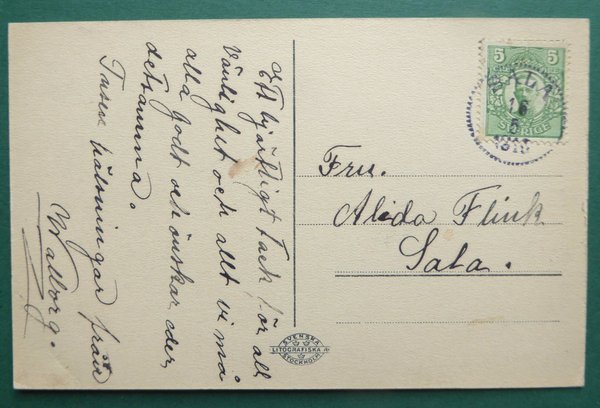 Ett hjärtligt tack för all
Vänlighet och allt vi må
alla godt och önskar eder
detsamma.
Tusen hälsningar från
Walborg.
Fru.
Alida Flink
Sala.
5 5
SALA
16
5
SVERIGE
SVENSKA
LITOGRAFISKA
STOCKHOLM